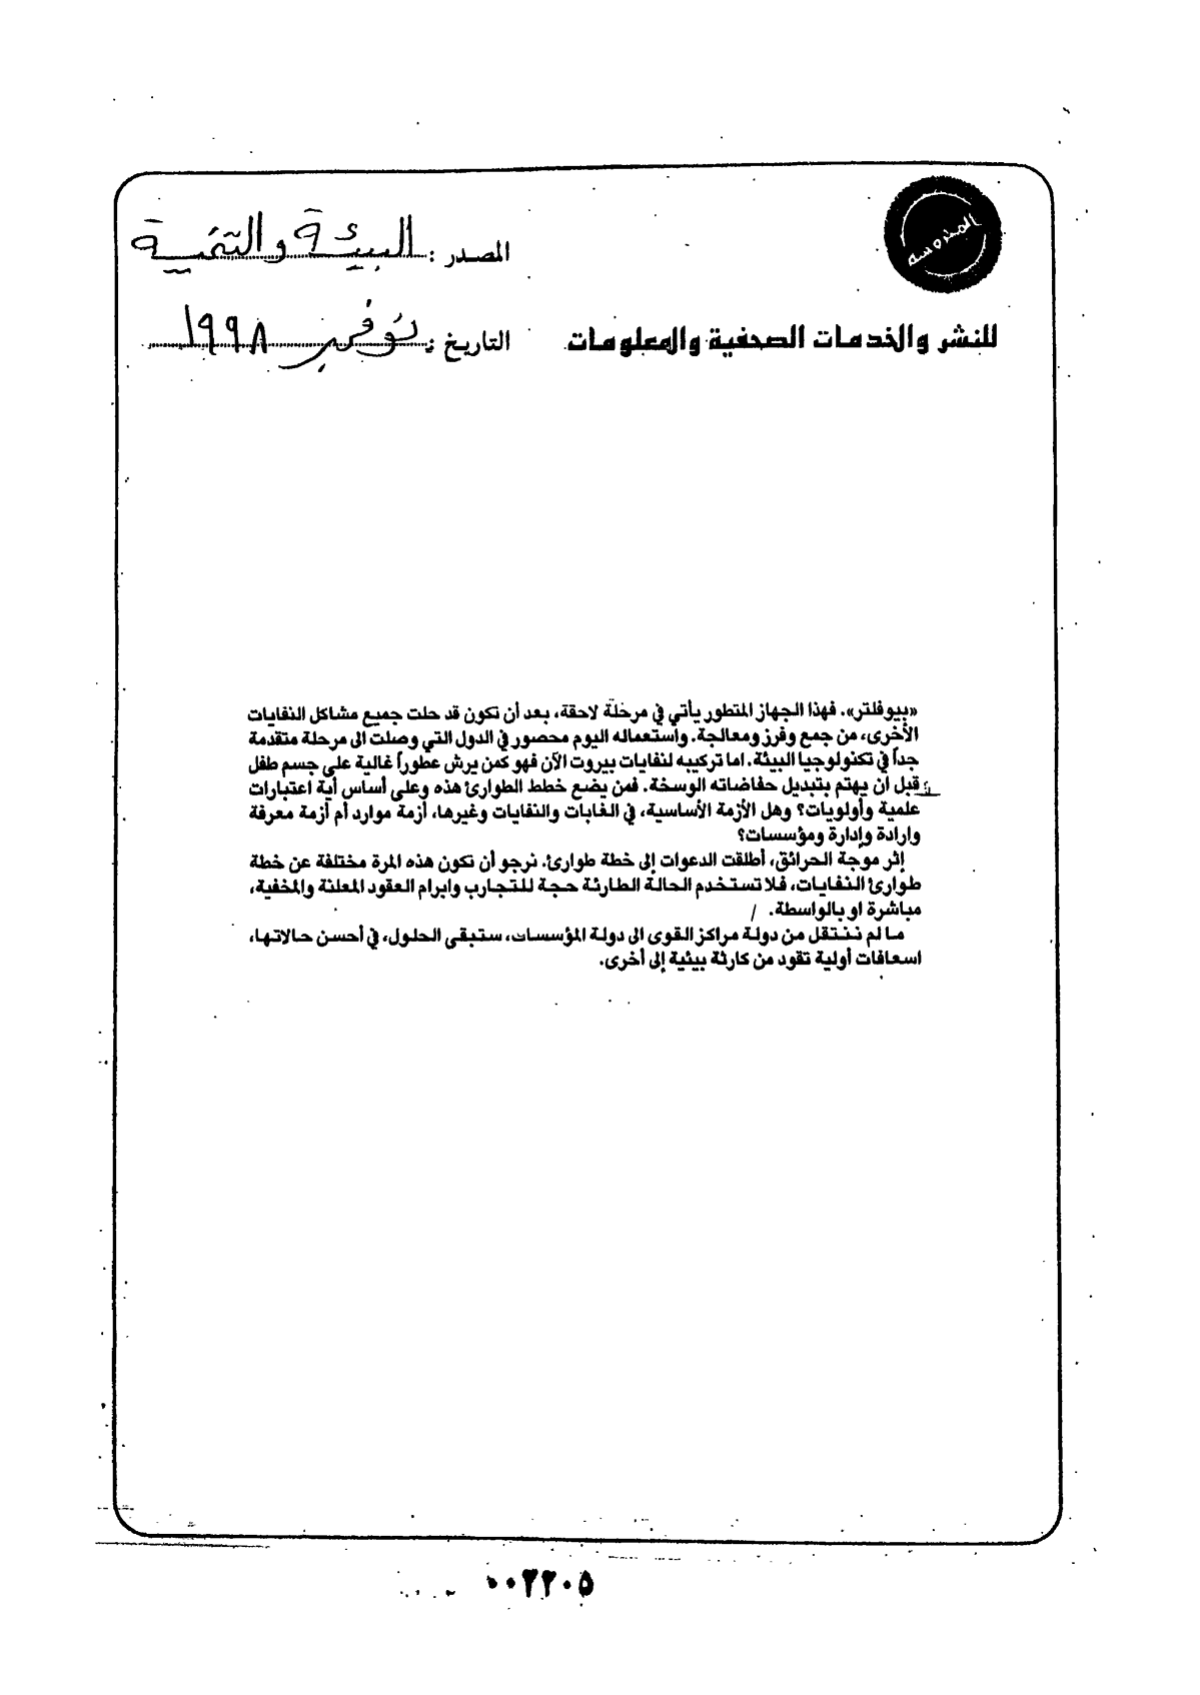 المحروسة
المصدر : البيئة والتنمية
للنشر والخدمات الصحفية والمعلومات
التاريخ : نوفمبر ١٩٩٨
«بيوفلتر». فهذا الجهاز المتطور يأتي في مرحلة لاحقة، بعد أن تكون قد حلت جميع مشاكل النفايات
الأخرى، من جمع وفرز ومعالجة. واستعماله اليوم محصور في الدول التي وصلت الى مرحلة متقدمة
جداً في تكنولوجيا البيئة. اما تركيبه لنفايات بيروت الآن فهو كمن يرش عطوراً غالية على جسم طفل
قبل أن يهتم بتبديل حفاضاته الوسخة. فمن يضع خطط الطوارئ هذه وعلى أساس أية اعتبارات
علمية وأولويات؟ وهل الأزمة الأساسية، في الغابات والنفايات وغيرها، أزمة موارد أم أزمة معرفة
وارادة وإدارة ومؤسسات؟
إثر موجة الحرائق، أطلقت الدعوات إلى خطة طوارئ. نرجو أن تكون هذه المرة مختلفة عن خطة
طوارئ النفايات، فلا تستخدم الحالة الطارئة حجة للتجارب وابرام العقود المعلنة والمخفية،
مباشرة او بالواسطة.
ما لم ننتقل من دولة مراكز القوى الى دولة المؤسسات، ستبقى الحلول، في أحسن حالاتها،
اسعافات أولية تقود من كارثة بيئية إلى أخرى.
٠٠٢٢٠٥